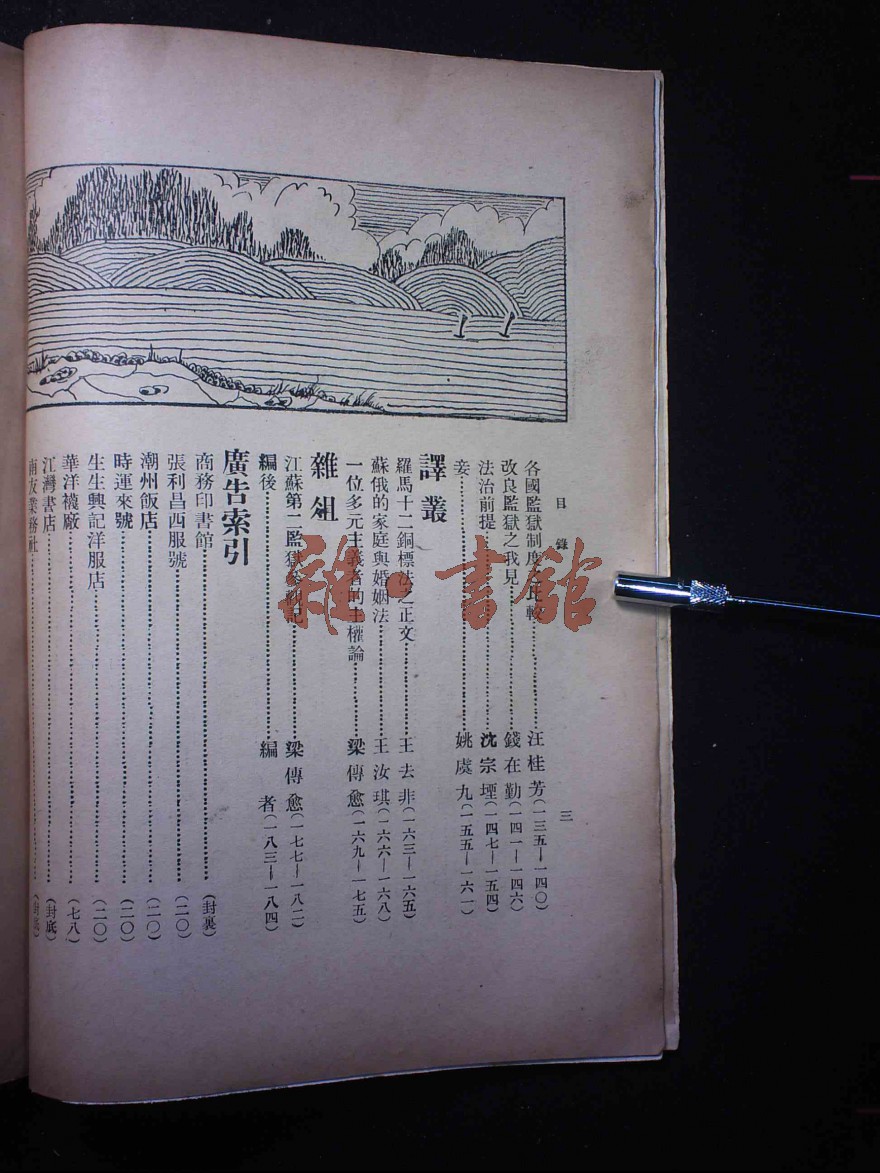 目錄
三
各國監獄制度之比較 汪桂芳(一三五—一四〇)
改良監獄之我見 錢在勤(一四一—一四六)
法治前提 沈宗堙(一四七—一五四)
妾 姚虞九(一五五—一六一)
譯叢
羅馬十二銅標法之正文 王去非(一六三—一六五)
蘇俄的家庭與婚姻法 王汝琪(一六六—一六八)
一位多元主義者的主權論 梁傳愈(一六九—一七五)
雜俎
江蘇第二監獄參觀記 梁傳愈(一七七—一八二)
編後 編者(一八三—一八四)
廣告索引
商務印書館 (封裏)
張利昌西服號 (二〇)
潮州飯店 (二〇)
時運來號 (二〇)
生生興記洋服店 (二〇)
華洋襪廠 (七八)
江灣書店 (封底)
南友業務社 (封底)
雜·書館